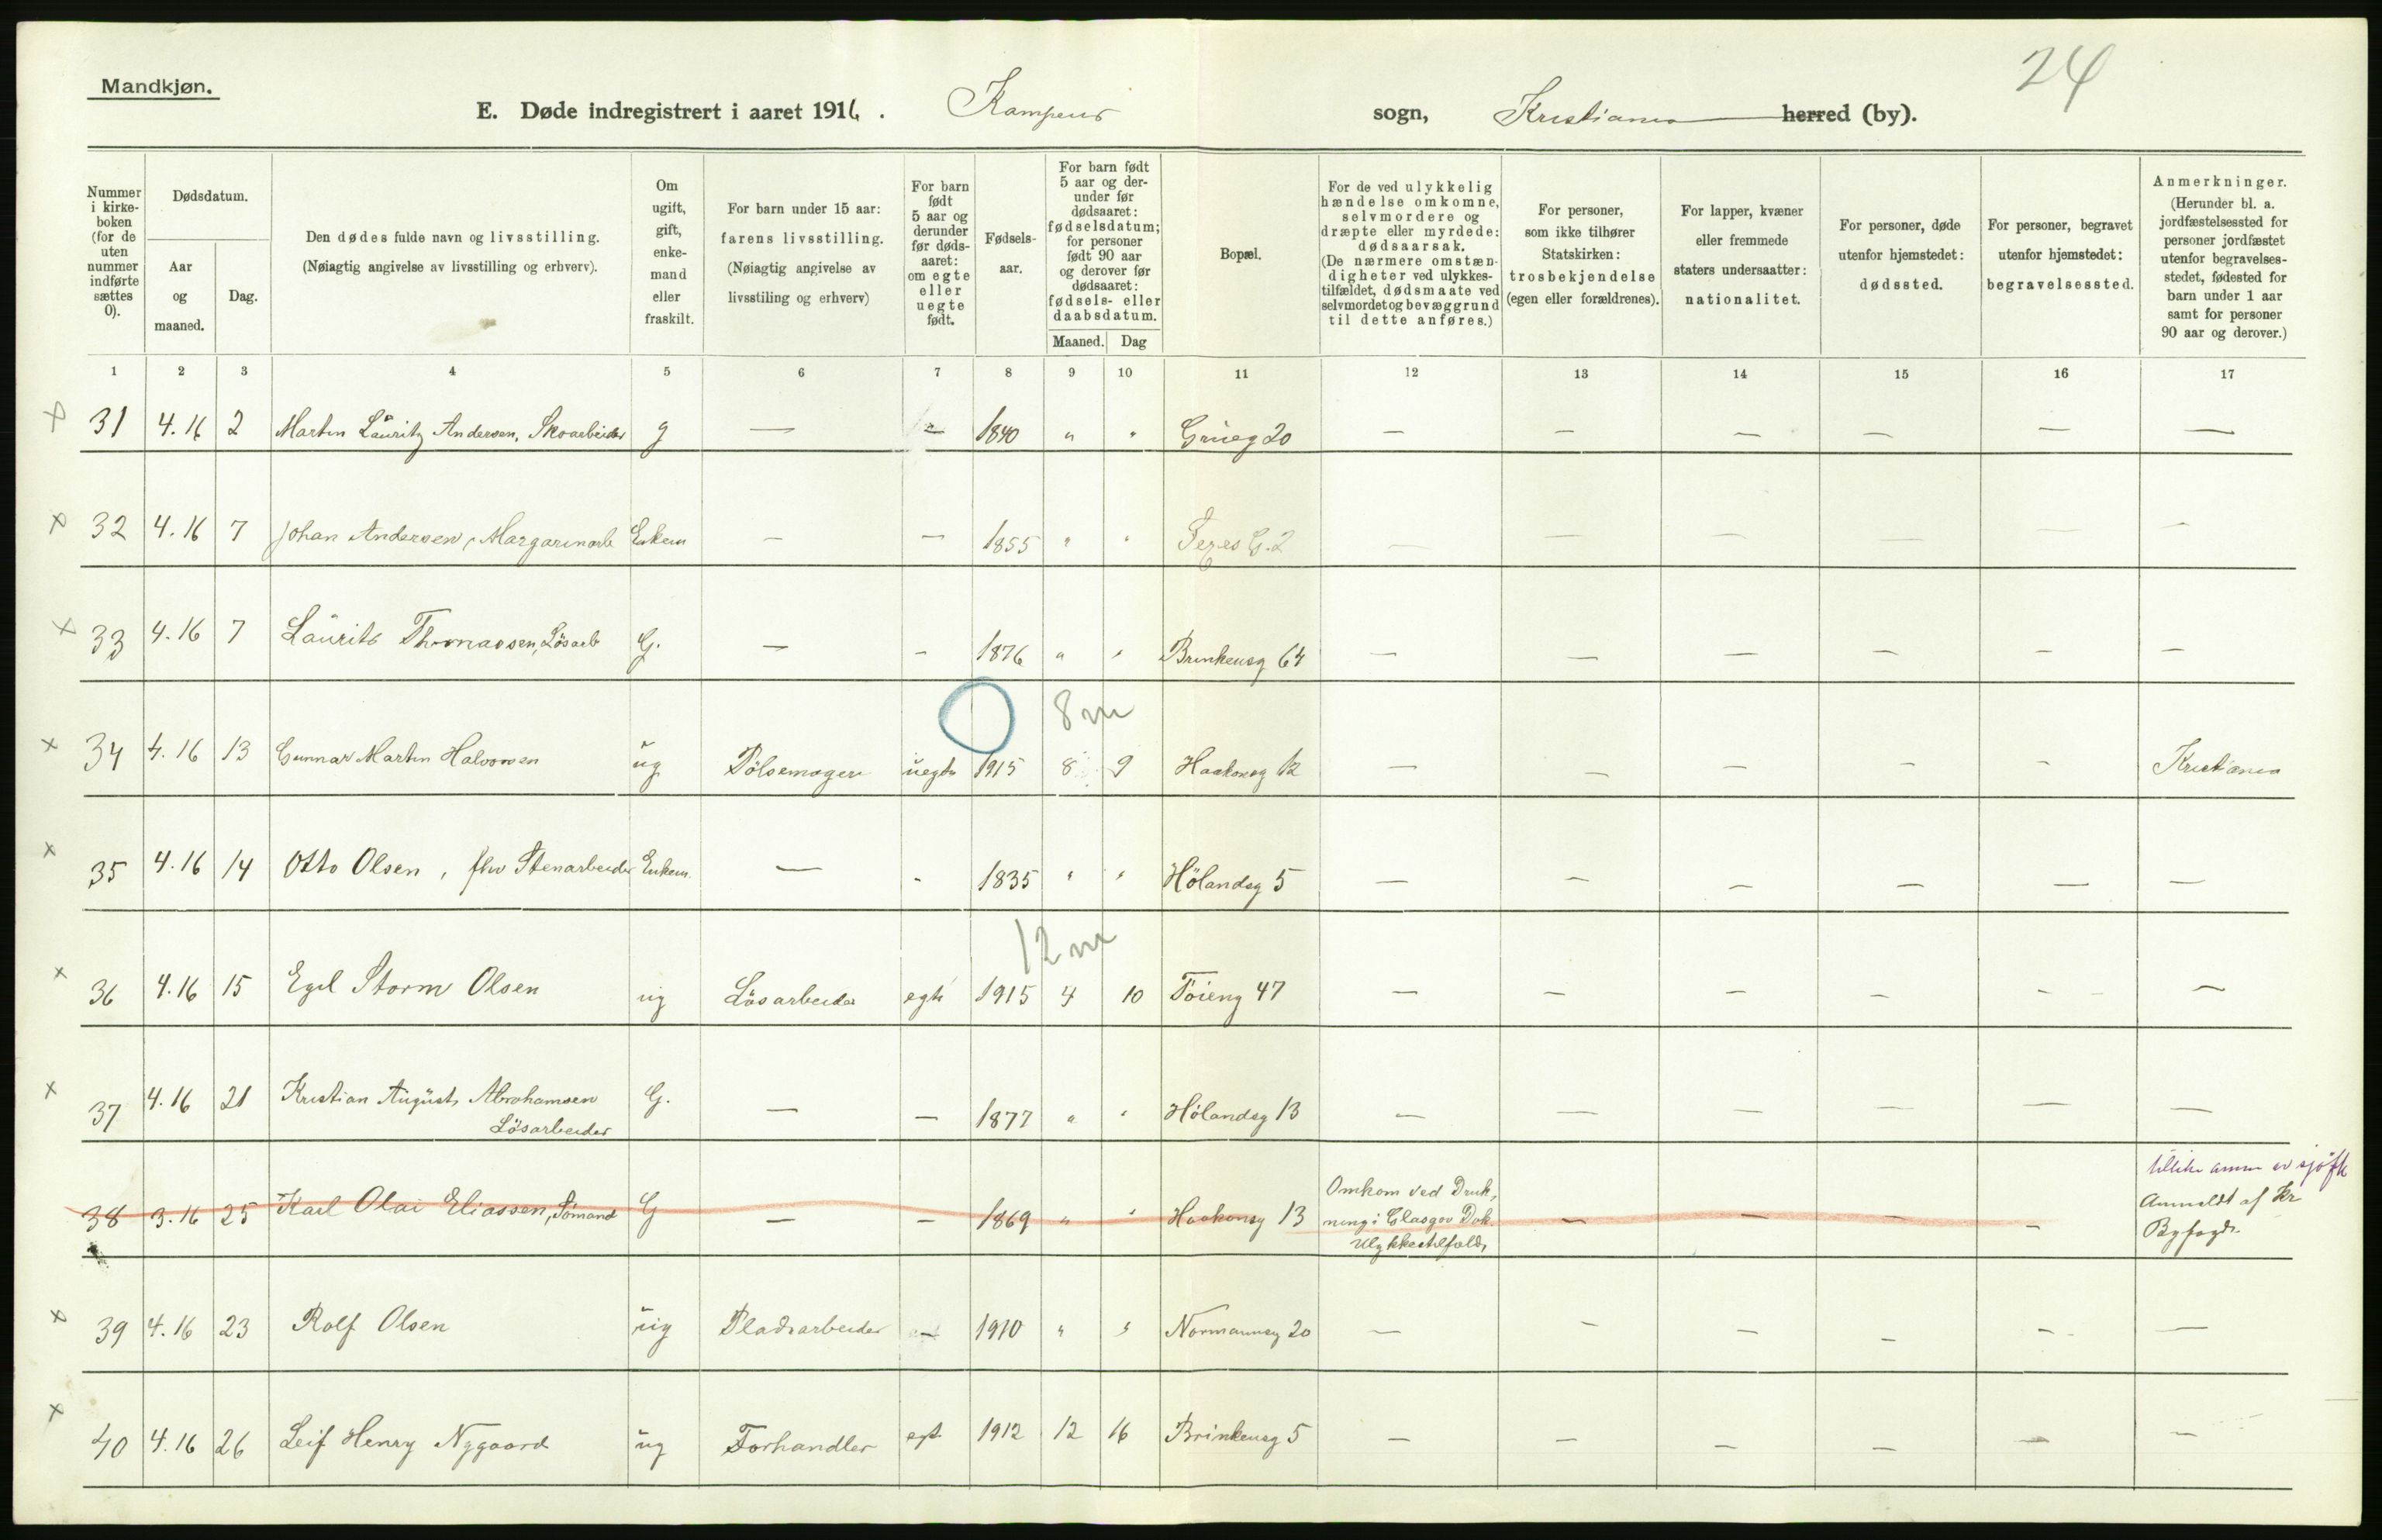 24
Mandkjøn.
E. Døde indregistrert i aaret 1916. Kampens sogn, Kristiania herred (by).
Nummer i kirke-boken (for de uten nummer indførte sættes 0).
Dødsdatum.
Aar og maaned.
Dag.
Den dødes fulde navn og livsstilling. (Nøiagtig angivelse av livsstilling og erhverv).
Om ugift, gift, enke-mand eller fraskilt.
For barn under 15 aar: farens livsstilling. (Nøiagtig angivelse av livsstiling og erhverv)
For barn født 5 aar og derunder før døds-aaret: om egte eller uegte født.
Fødsels-aar.
For barn født 5 aar og der-under før dødsaaret: fødselsdatum; for personer født 90 aar og derover før dødsaaret: fødsels- eller daabsdatum.
Maaned. Dag
Bopæl.
For de ved ulykkelig hændelse omkomne, selvmordere og dræpte eller myrdede: dødsaarsak. (De nærmere omstæn-digheter ved ulykkes-tilfældet, dødsmaate ved selvmordet og bevæggrund til dette anføres.)
For personer, som ikke tilhører Statskirken: trosbekjendelse (egen eller forældrenes).
For lapper, kvæner eller fremmede staters undersaatter: nationalitet.
For personer, døde utenfor hjemstedet: dødssted.
For personer, begravet utenfor hjemstedet: begravelsessted.
Anmerkninger. (Herunder bl. a. jordfæstelsessted for personer jordfæstet utenfor begravelses-stedet, fødested for barn under 1 aar samt for personer 90 aar og derover.)
1 2 3 4 5 6 7 8 9 10 11 12 13 14 15 16 17
x 31 4.16 2 Martin Lauritz Andersen, Skoarbeider g — — 1840 " " Grüeg 20 — — — — — —
x 32 4.16 7 Johan Andersen, Margarinarb Enkem — — 1855 " " G. 2 — — — — — —
x 33 4.16 7 Laurits Thomassen, Lösarb G. — — 1876 " " Brinkensg 64 — — — — — —
8 m
x 34 4.16 13 Gunnar Martin Halvorsen ug Pölsemager uegte 1915 8 9 Haakonsg 12 — — — — — Kristiania
x 35 4.16 14 Otto Olsen, fhv Stenarbeider Enkem. — - 1835 " " Hölandsg 5 — — — — — —
12 m
x 36 4.16 15 Egil Storm Olsen ug Lösarbeider egte 1915 4 10 Töieng 47 — — — — - — —
x 37 4.16 21 Kristian August Abrahamsen G. — — 1877 " " Hölandsg 13 — — — — — —
Lösarbeider
38 3.16 25 Karl Olai Eliassen, Sömand G — — 1869 " " Haakonsg 13 Omkom ved Druk-
ning i Glasgov Dok.
Ulykkestilfald, — — — —
tillike anm sjöfk
Anmeldt af Kr
Byfogd.
x 39 4.16 23 Rolf Olsen ug Pladsarbeider — 1910 " " Normannsg 20 — — — — — —
x 40 4.16 26 Leif Henry Nygaard ug Forhandler egt. 1912 12 16 Brinkensg 5 — — — — — —